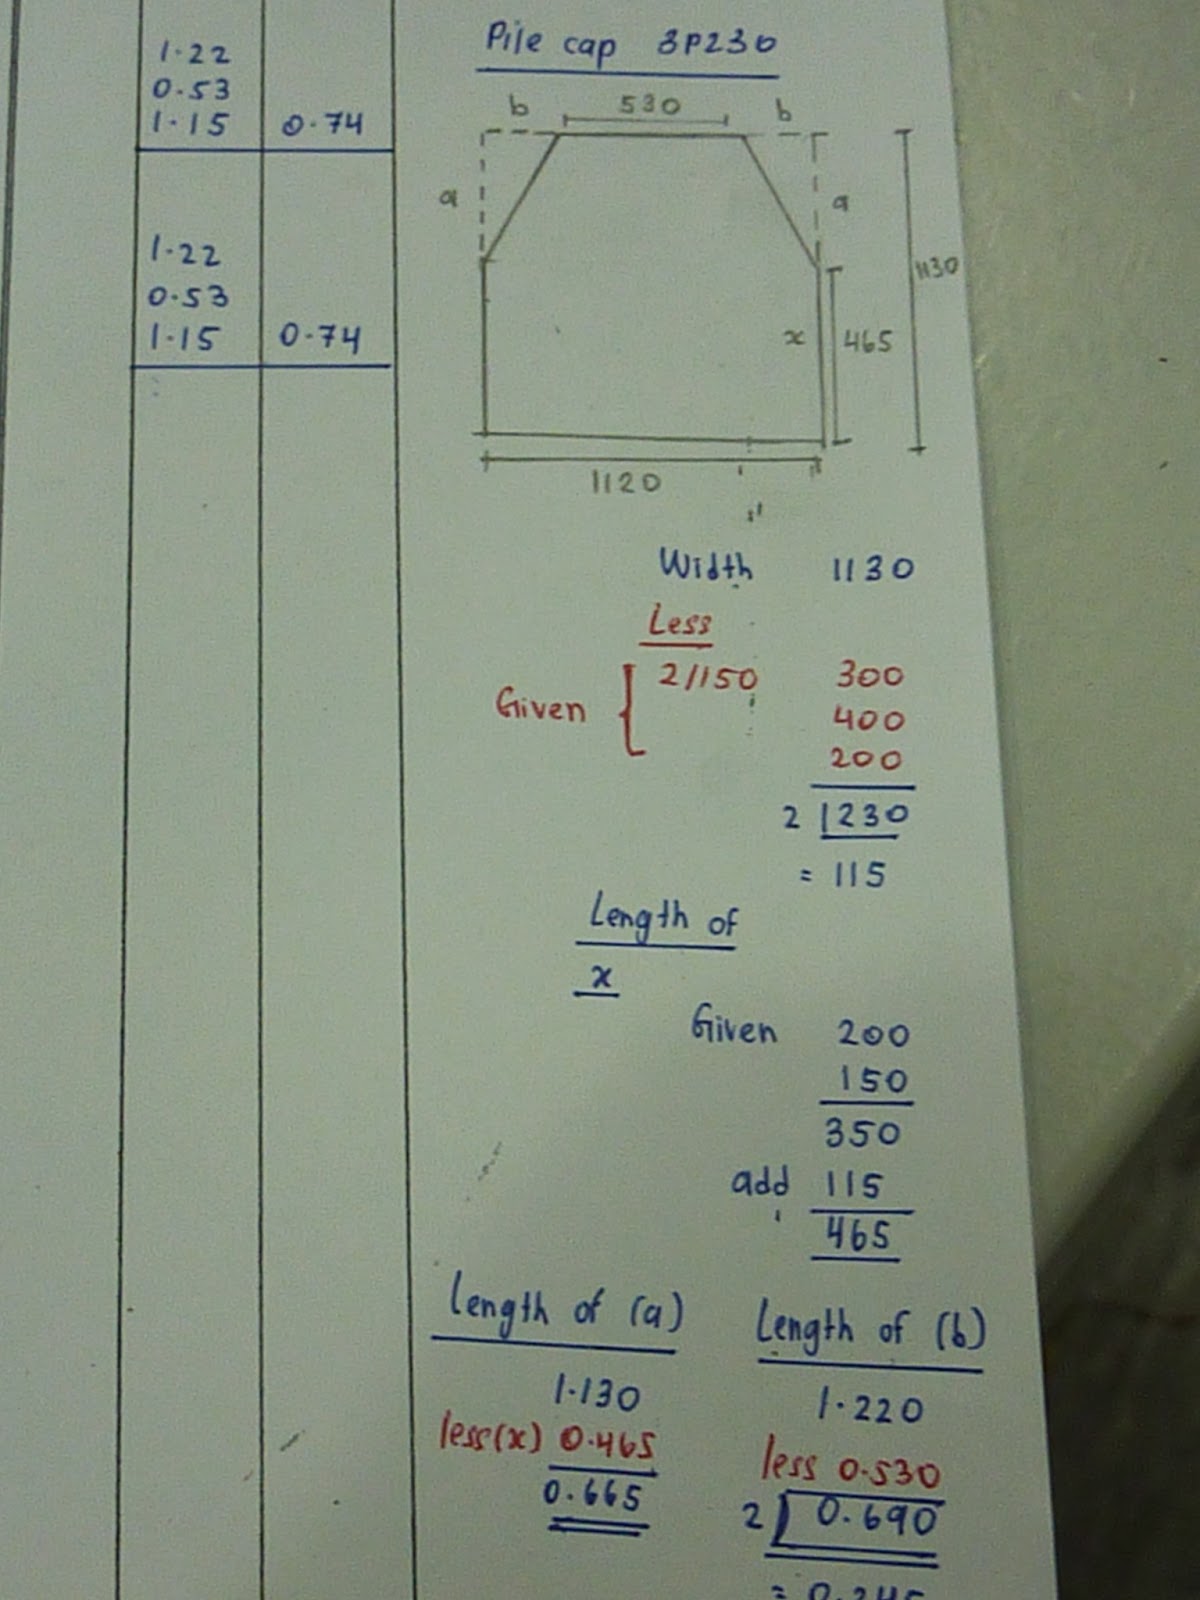 1.22
0.53
1.15 0.74
1.22
0.53
1.15 0.74
Pile cap 3P230
b 530 b
a a
1130
x 465
1120
Width 1130
Less
Given 2/150 300
400
200
2 230
= 115
Length of
x
Given 200
150
350
add 115
465
Length of (a)
1.130
less(x) 0.465
0.665
Length of (b)
1.220
less 0.530
2 0.690